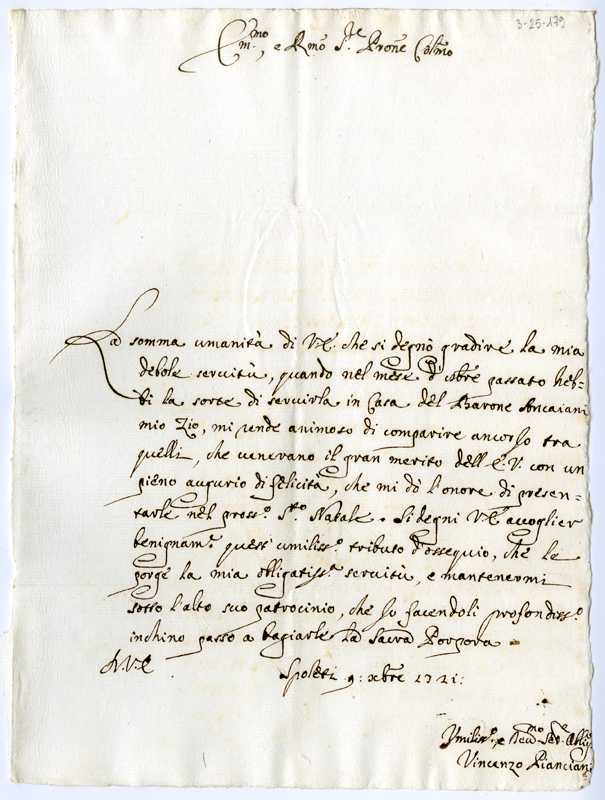 3-25-179
Em.mo, e Rmo S.re Prone Colmo
La somma umanità di V.E. che si degnò gradire la mia
debole servitù, quando nel mese d'8bre passato heb=
bi la sorte di servirla in Casa del Barone Ancaiani
mio Zio, mi rende animoso di comparire ancor Io tra
quelli, che venerano il gran merito dell'E.V. con un
pieno augurio di felicità, che mi dò l'onore di presen-
tarle nel pross.o S.to Natale. Si degni V.E. accoglier
benignam.e quest'umiliss.o tributo d'ossequio, che le
porge la mia obligatiss.a servitù, e mantenermi
sotto l'alto suo patrocinio, che Io facendoli profondiss.o
inchino passo a bagiarle la Sacra Porpora
D.V.E.
Spoleti 9: xbre 1721:
Umiliss.o, e Dev.mo Ser.e Obblig
Vincenzo Pianciani